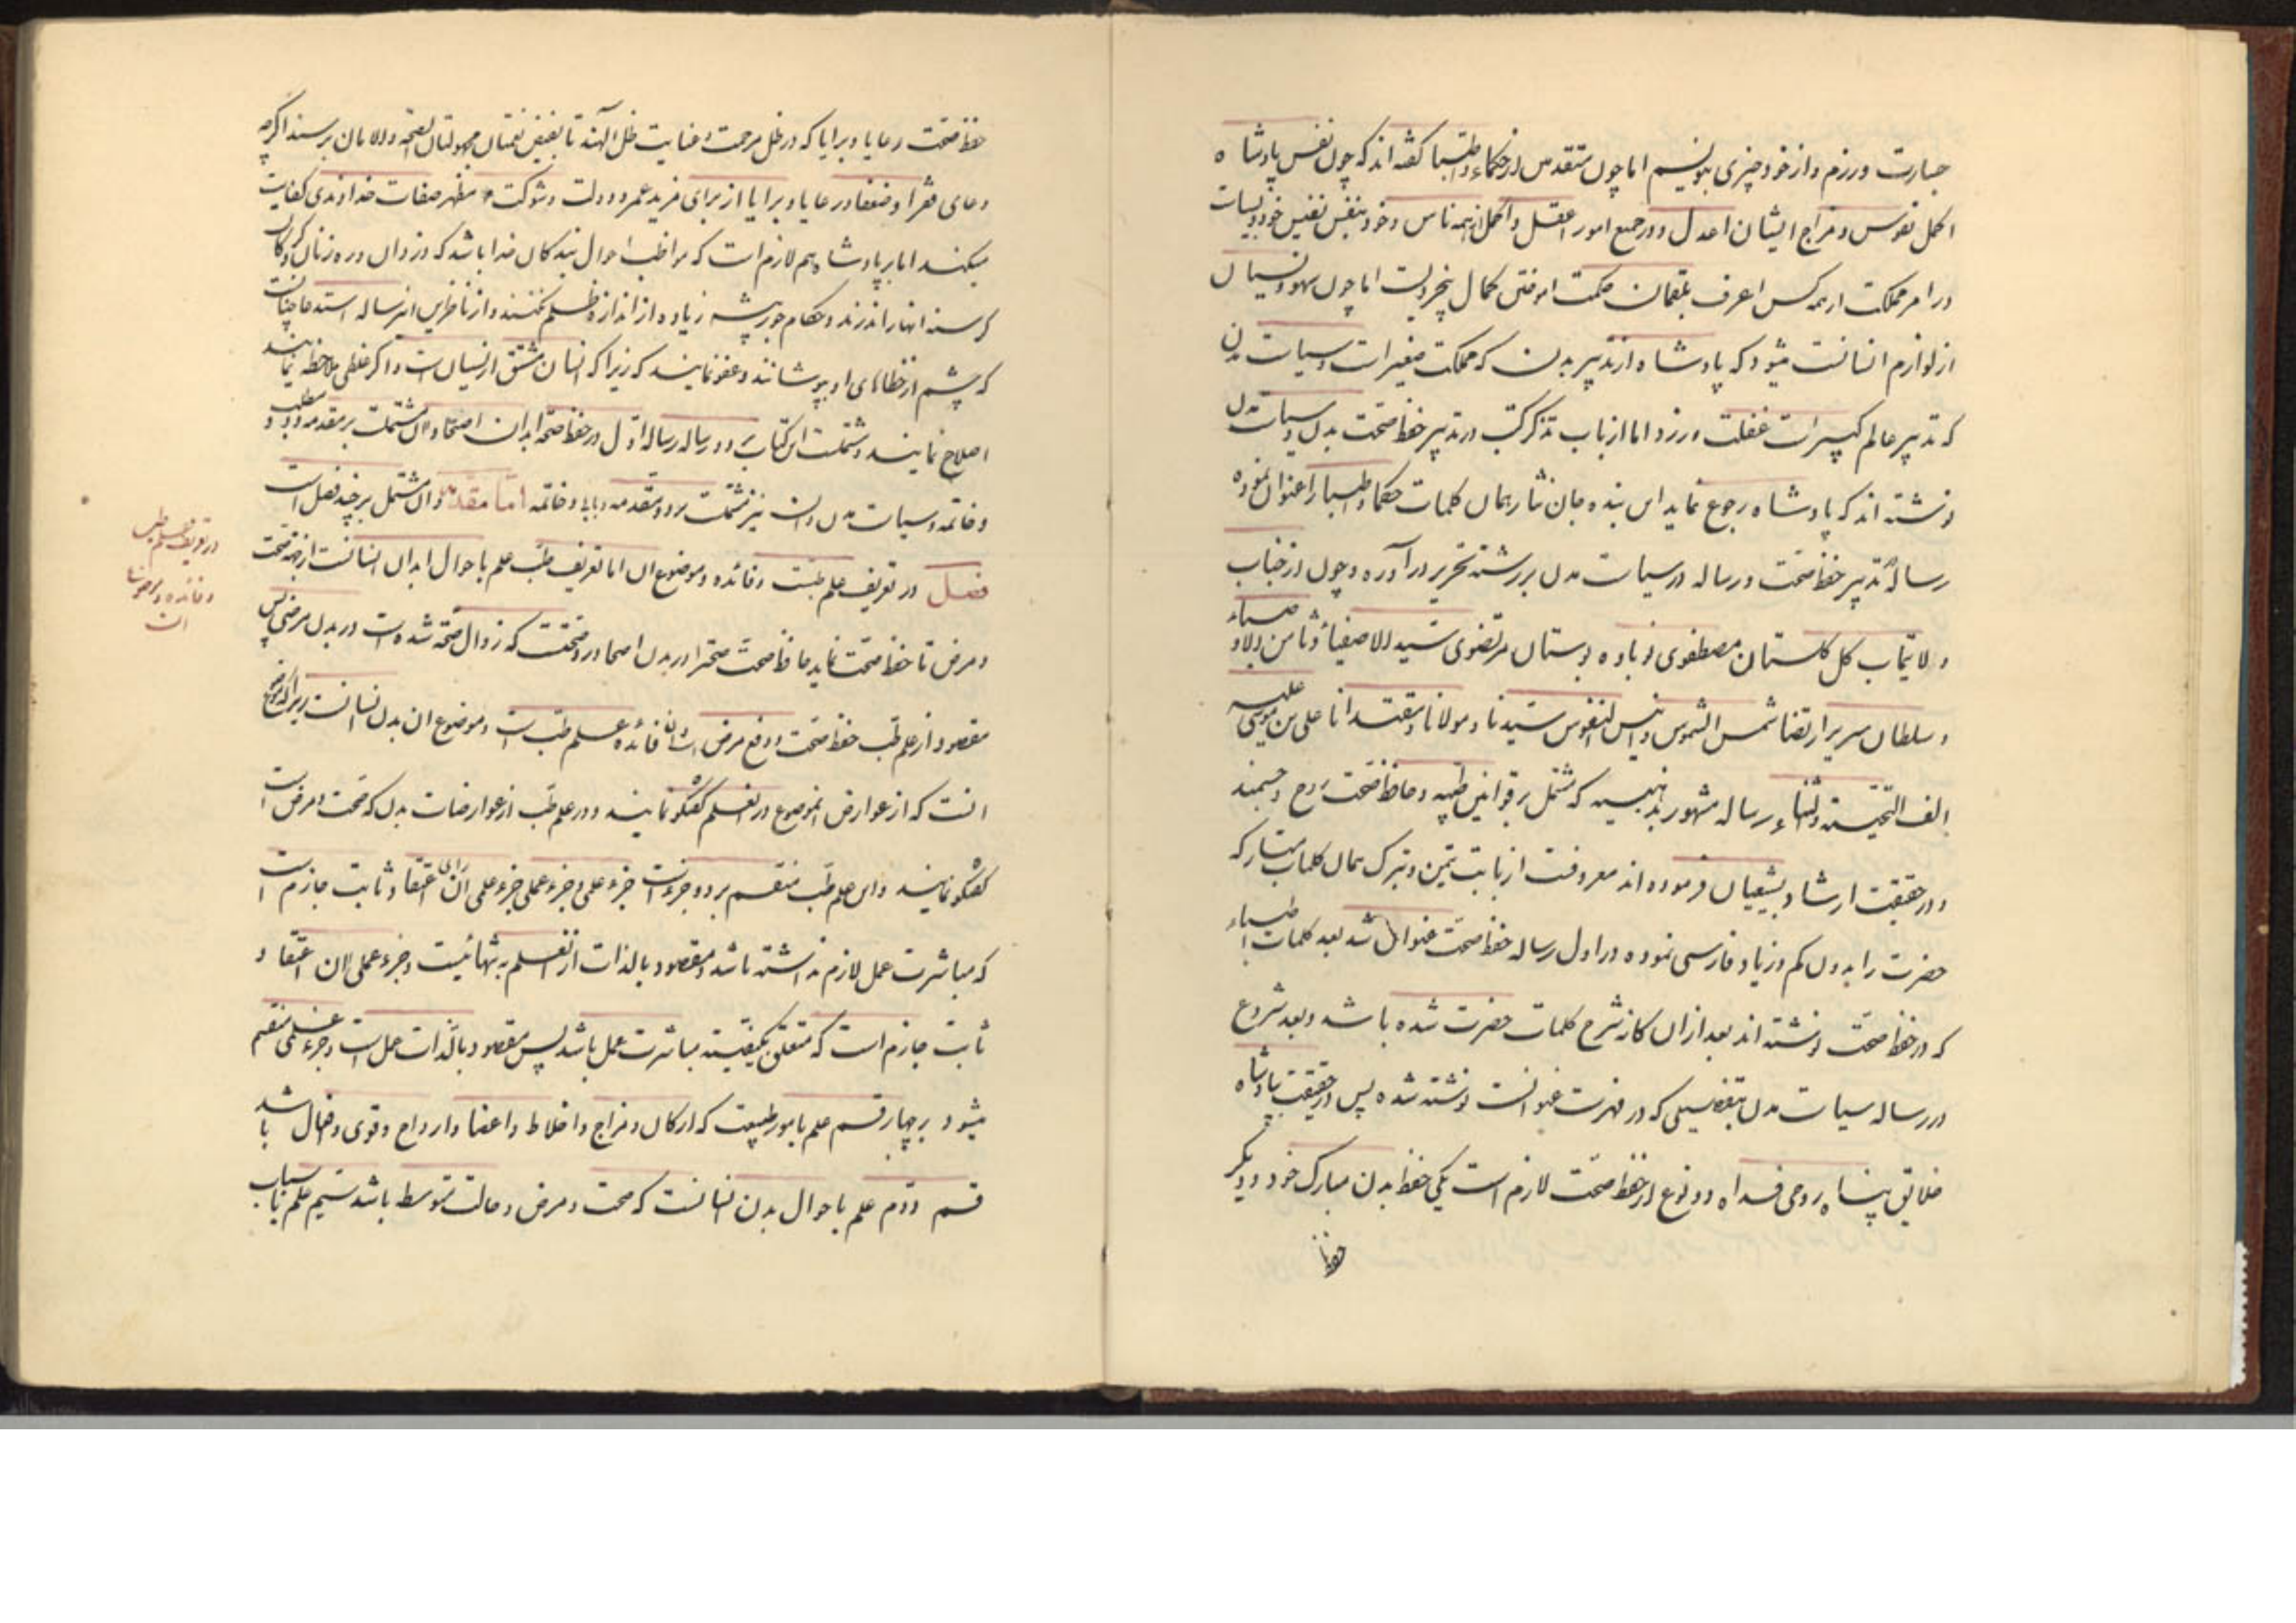 جسارت ورزم و از خود چیزی بنویسم اما چون متقدمین از حکماء و اطبا گفته اند که چون نفس پادشاه
اکمل نفوس و مزاج ایشان اعدل و در جمیع امور اعقل و اکمل از همه ناس و خود بنفس نفیس خود و سیاست
در امر مملکت از همه کس اعرف بلقمان حکمت اموختن کمال بیخردیست اما چون سهو و نسیان
از لوازم انسانست میشود که پادشاه از تدبیر بدن که مملکت صغیر است و سیاست مدن
که تدبیر عالم کبیر است غفلت ورزد اما از باب تذکر کتب در تدبیر حفظ صحت بدن و سیاست مدن
نوشته اند که پادشاه رجوع نماید این بنده جان نثار همان کلمات حکما و اطبا را عنوان نموده
رسالهٔ تدبیر حفظ صحت و رساله در سیاست مدن بر رشته تحریر در آورده و چون از جناب
ولایتمآب گل گلستان مصطفوی نوباوه بوستان مرتضوی سید الاصفیاء و ثامن اولاد
و سلطان سریر ارتضا شمس الشموس و انیس النفوس سیدنا و مولانا و مقتدانا علی بن موسی علیه
الف التحیته و الثناء رساله مشهور بذهبیه که مشتمل بر قوانین طبیه و حافظ صحت روح و جسمند
و در حقیقت ارشاد بشیعیان فرموده اند معروفست از بابت تیمن و تبرک همان کلمات مبارکه
حضرت را بدون کم و زیاد فارسی نموده در اول رساله حفظ صحت عنوان شد بعد کلمات اطباء
که در حفظ صحت نوشته اند بعد از ان کانه شرح کلمات حضرت شده باشد و بعد شروع
در رساله سیاست مدن بتفصیلی که در فهرست عنوانست نوشته شده پس در حقیقت پادشاه
خلایق پناه روحی فداه دو نوع از حفظ صحت لازم است یکی حفظ بدن مبارک خود و دیگر
حفظ
حفظ صحت رعایا و برایا که در ظل مرحمت و عنایت ظل الهند تا بفیض نعمتان مجهولتان الصحة و الامان برسند اگرچه
دعای فقرا و ضعفا و رعایا و برایا از برای مزید عمر و دولت و شوکت مظهر صفات خداوندی کفایت
میکند اما بر پادشاه هم لازم است که مواظب احوال بندگان خدا باشد که دزدان و ره زنان
گرسنه انها را ندرند و حکام جور پیشه زیاده از اندازه ظلم نکنند و از ناظرین این رساله استدعا چنانست
که چشم از خطاهای او بپوشانند و عفو نمایند که زیرا که انسان مشتق از نسیان است و اگر غلطی ملاحظه نمایند
اصلاح نمایند و مشتملست این کتاب بر دو رساله رساله اول در حفظ صحة ابدان اصحا و ان مشتملست بر مقدمه و دو مطلب و
و خاتمه و سیاست مدن و ان نیز مشتملست بر دو مقدمه و بابا و خاتمه اما مقدمه و ان مشتمل بر چند فصل است
فصل در تعریف علم طبست و فائده و موضوع ان اما تعریف طب علم باحوال ابدان انسانست از جهة صحت
و مرض تا حفظ صحت نماید حافظ صحت صحت را در بدن اصحا و رد صحتست که زوال صحة شده است در بدن مرضی پس
مقصود از علم طب حفظ صحت و دفع مرض است و ان فائده علم طب است و موضوع ان بدن انسانست زیرا که موضوع
انست که از عوارض انموضوع در انعلم گفتگو نمایند و در علم طب از عوارضات بدن که صحت و مرض است
گفتگو نمایند و این علم طب منقسم بر دو جزء است جزء علمی و جزء عملی جزء علمی ان رای اعتقاد ثابت جازم است
که مباشرت عمل لازم نداشته باشد و مقصود بالذات از انعلم به تنهائیست و جزء عملی ان اعتقاد
ثابت جازم است که متعلق بکیفیته مباشرت عمل باشد پس مقصود بالذات عمل است و جزء علمی منقسم
میشود بر چهار قسم علم بامور طبیعت که ارکان و مزاج و اخلاط و اعضا و ارواح و قوی و افعال باشد
قسم دوم علم باحوال بدن انسانست که صحت و مرض و حالت متوسط باشد سیم علم باسباب
در تعریف علم طب
و فائده و موضوع
ان